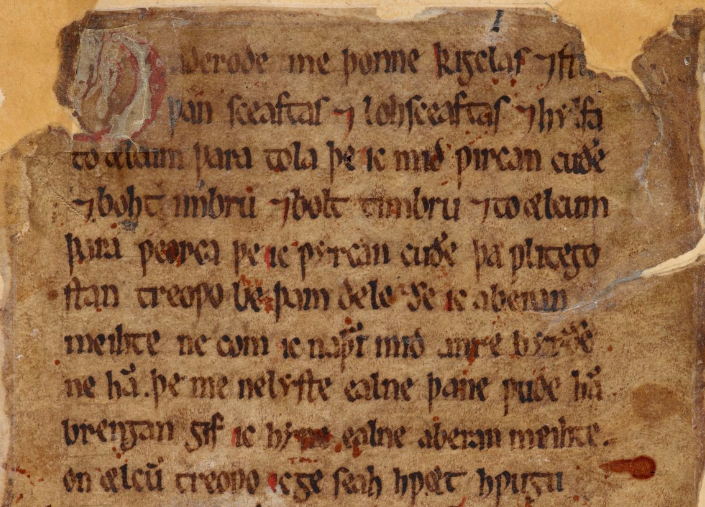 Gaderode me þonne kigclas ⁊ stu
þan sceaftas ⁊ lohsceaftas ⁊ hylfa
to ælcum þara tola þe ic mid ƿircan cuðe
⁊ bohtimbrū ⁊ bolt timbrū ⁊ to ælcum
þara ƿeorca þe ic ƿyrcan cuðe þa ƿlitego
stan treoƿo be þam dele ðe ic aberan
meihte ne com ic naþer mid anre byrðene
ne hā. þe me ne lyste ealne þane ƿude hā
brengan gif ic hyne ealne aberan meihte.
on ælcū treoƿo ic ge seah hƿæt hƿugu